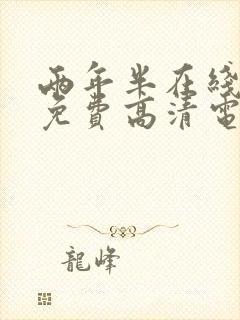 兩年半在綫
免費高清電
龍峰